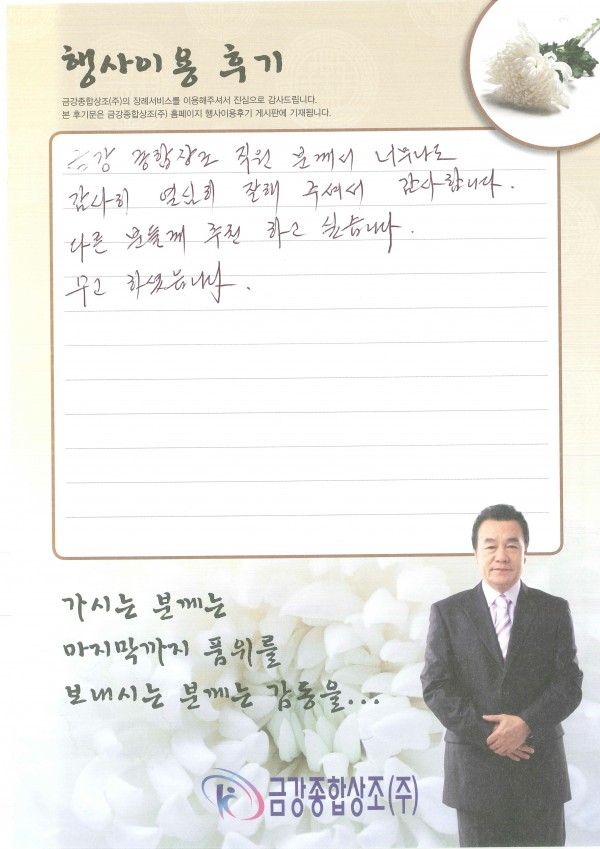 행사이용 후기
금강종합상조(주)의 장례서비스를 이용해주셔서 진심으로 감사드립니다.
본 후기문은 금강종합상조(주) 홈페이지 행사이용후기 게시판에 기재됩니다.
금강 종합상조 직원 분께서 너무나도
감사히 열심히 잘해 주셔서 감사합니다.
다른 분들께 추천 하고 싶습니다.
수고 하셨습니다.
가시는 분께는
마지막까지 품위를
보내시는 분께는 감동을...
금강종합상조(주)